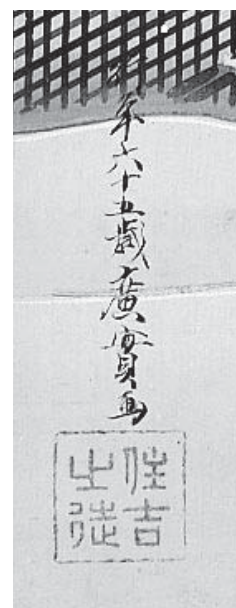 行年六十五歳廣實画
住吉
之徒